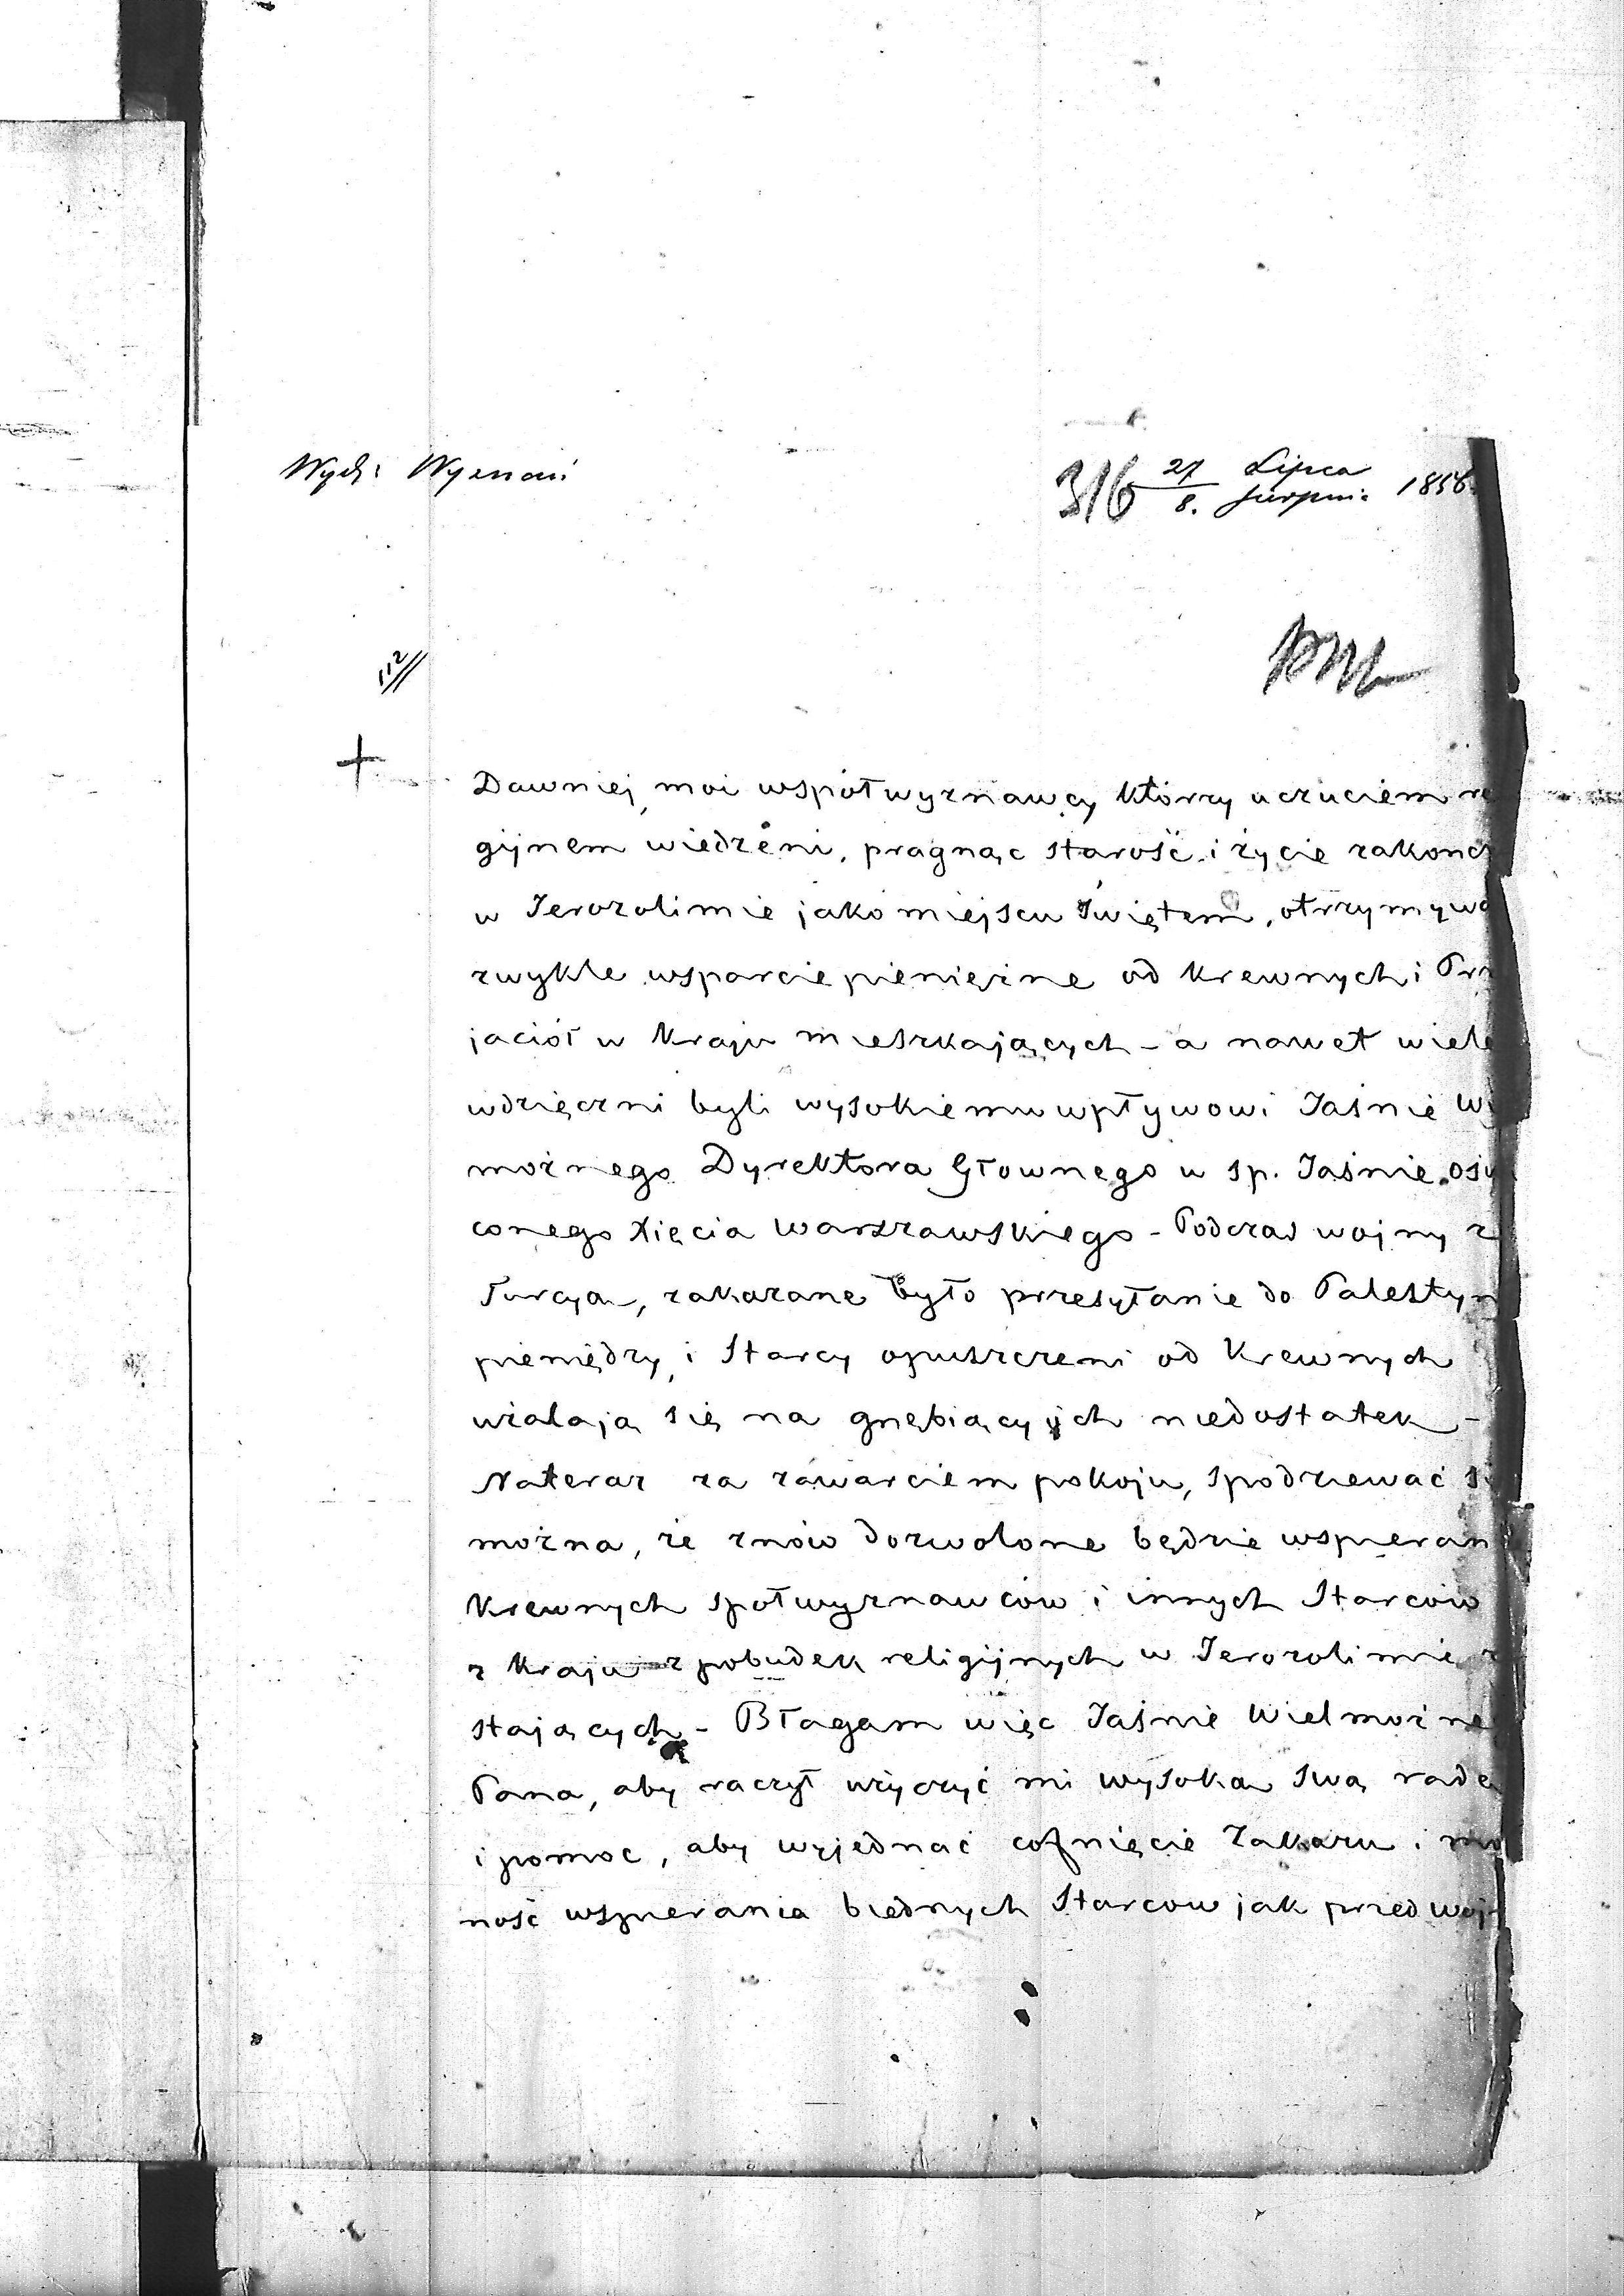 Wydz: Wyznań
316 27/8. Lipca/Sierpni: 1856.
112
Dawniej moi wspołwyznawcy którzy uczuciem re
gijnem wiedzeni, pragnąc starość i życie zakończ
w Jerozolimie jako miejscu Świętem, otrzymywa
zwykle wsparcie pieniężne od krewnych i Prz
jaciół w Kraju mieszkających - a nawet wiele
wdzięczni byli wysokiemu wpływowi Jaśnie W
możnego Dyrektora Głownego u sp. Jaśnie oświ
conego Xięcia Warszawskiego - Podczas wojny z
Turcyą, zakazane było przesyłanie do Palestyn
pieniędzy, i Starcy opuszczeni od Krewnych
użalają się na gnębiący ich niedostatek -
Nateraz za zawarciem pokoju, spodziewać si
można, że znów dozwolone będzie wspieran
Krewnych społwyznawców i innych Starców
z Kraju z pobudek religijnych w Jerozolimie z
stających - Błagam więc Jaśnie Wielmożne
Pana, aby raczył użyczyć mi wysoką swą radę
i pomoc, aby wyjednać cofnięcie Zakazu i mo
ność wspierania biednych Starcow jak przed woj